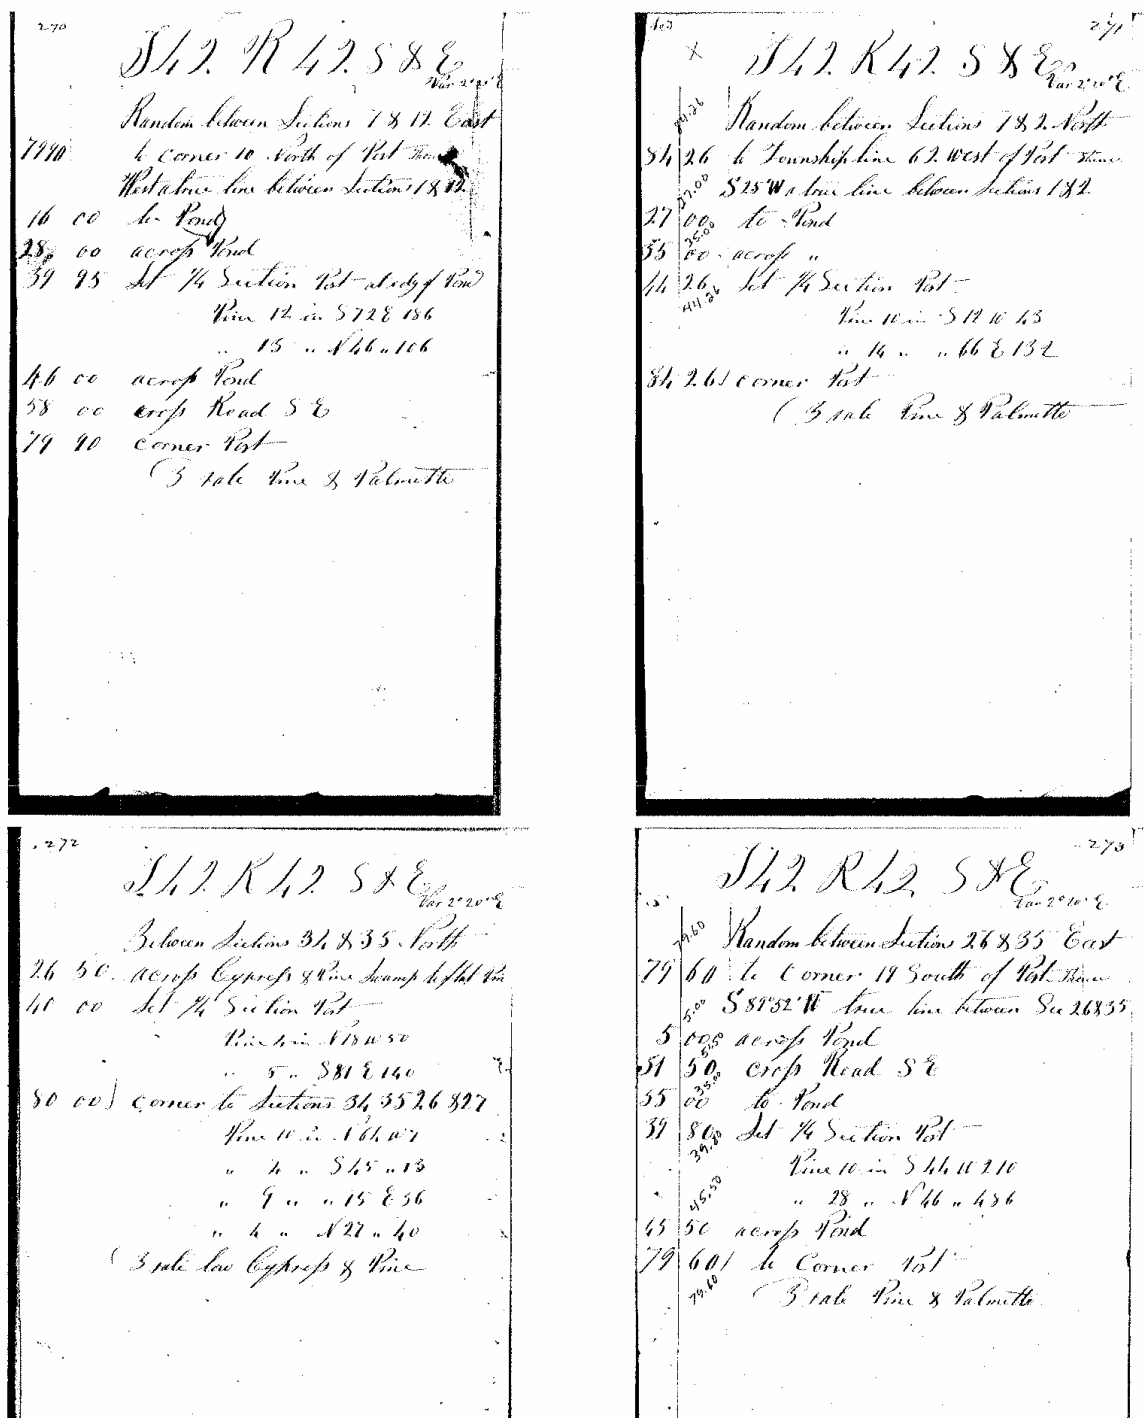 270
T42. R 42. S & E
Var 2°20' E
Random between Sections 1 & 12 East
7990 to corner 10 North of Post Thence
West a true line between Sections 1 & 12
16 00 to Pond
28 00 across Pond
39 95 Set 1/4 Section Post at edge of Pond
Pine 12 in S 72 E 186
" 13 " N 46 " 106
46 00 across Pond
58 00 cross Road S E
79 90 Corner Post
3 rate Pine & Palmetto
271
X
T42. R42. S & E
Var 2°20' E
84.26
Random between Sections 1 & 2 North
84 26 to Township line 62 West of Post Thence
S 25' W a true line between Sections 1 & 2
27.00
27 00 to Pond
35.00
35 00 across "
44 26 Set 1/4 Section Post
44.26
Pine 10 in S 12 W 43
" 14 " " 66 E 132
84 26 corner Post
( 3 rate Pine & Palmetto
272
T42 R 42 S & E
Var 2°20' E
Between Sections 34 & 35 North
26 50 across Cypress & Pine Swamp to flat Pine
40 00 Set 1/4 Section Post
Pine 4 in N 18 W 50
" 5 " S 81 E 140
80 00 Corner to Sections 34 35 26 & 27
Pine 10 in N 64 W 7
" 4 " S 45 " 13
" 9 " " 15 E 56
" 4 " N 27 " 40
( 3 rate low Cypress & Pine
273
T42 R42 S & E
Var 2°20' E
79.60
Random between Section 26 & 35 East
79 60 to Corner 19 South of Post Thence
S 89°52' W true line between Sec 26 & 35
5.00
5 00 across Pond
51 50 cross Road S E
35.00
35 00 to Pond
39 80 Set 1/4 Section Post
39.80
Pine 10 in S 44 W 210
" 28 " N 46 " 436
45.50
45 50 across Pond
79 60 to Corner Post
79.60
3 rate Pine & Palmetto